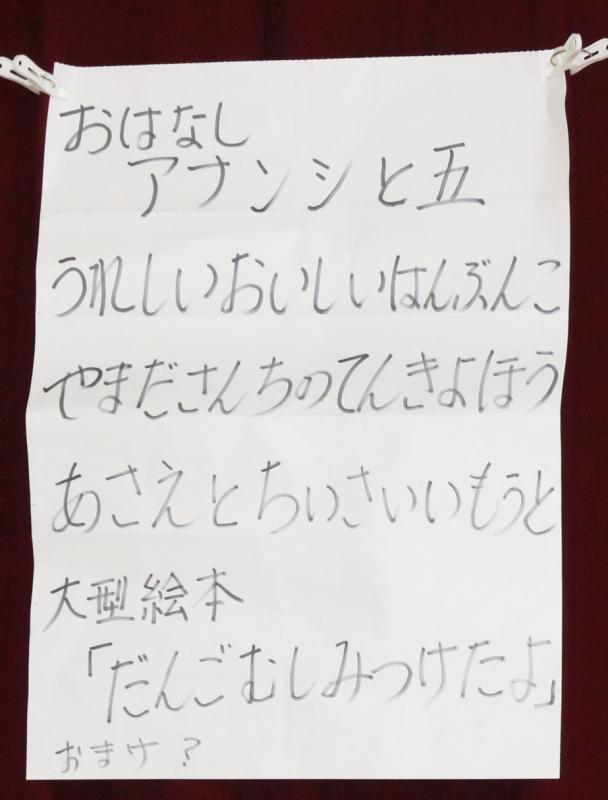 おはなし
アナンシと五
うれしいおいしいはんぶんこ
やまださんちのてんきよほう
あさえとちいさいいもうと
大型絵本
「だんごむしみつけたよ」
おまけ?